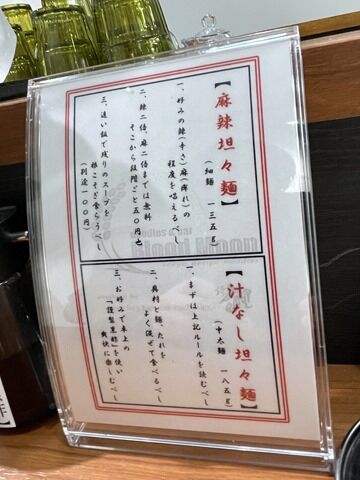 【麻辣坦々麺】
(細麺 一三五g)
一、好みの辣(辛さ)麻(痺れ)の
程度を唱えるべし
二、辣二倍、麻二倍までは無料
そこから段階ごと五〇円也
三、追い飯で残りのスープを
根こそぎ食らうべし
(別途一〇〇円)
【汁なし坦々麺】
(中太麺 一八五g)
一、まずは上記ルールを読むべし
二、具材と麺、たれを
よく混ぜて食べるべし
三、お好みで卓上の
「謹製黒酢」を使い
爽快に楽しむべし